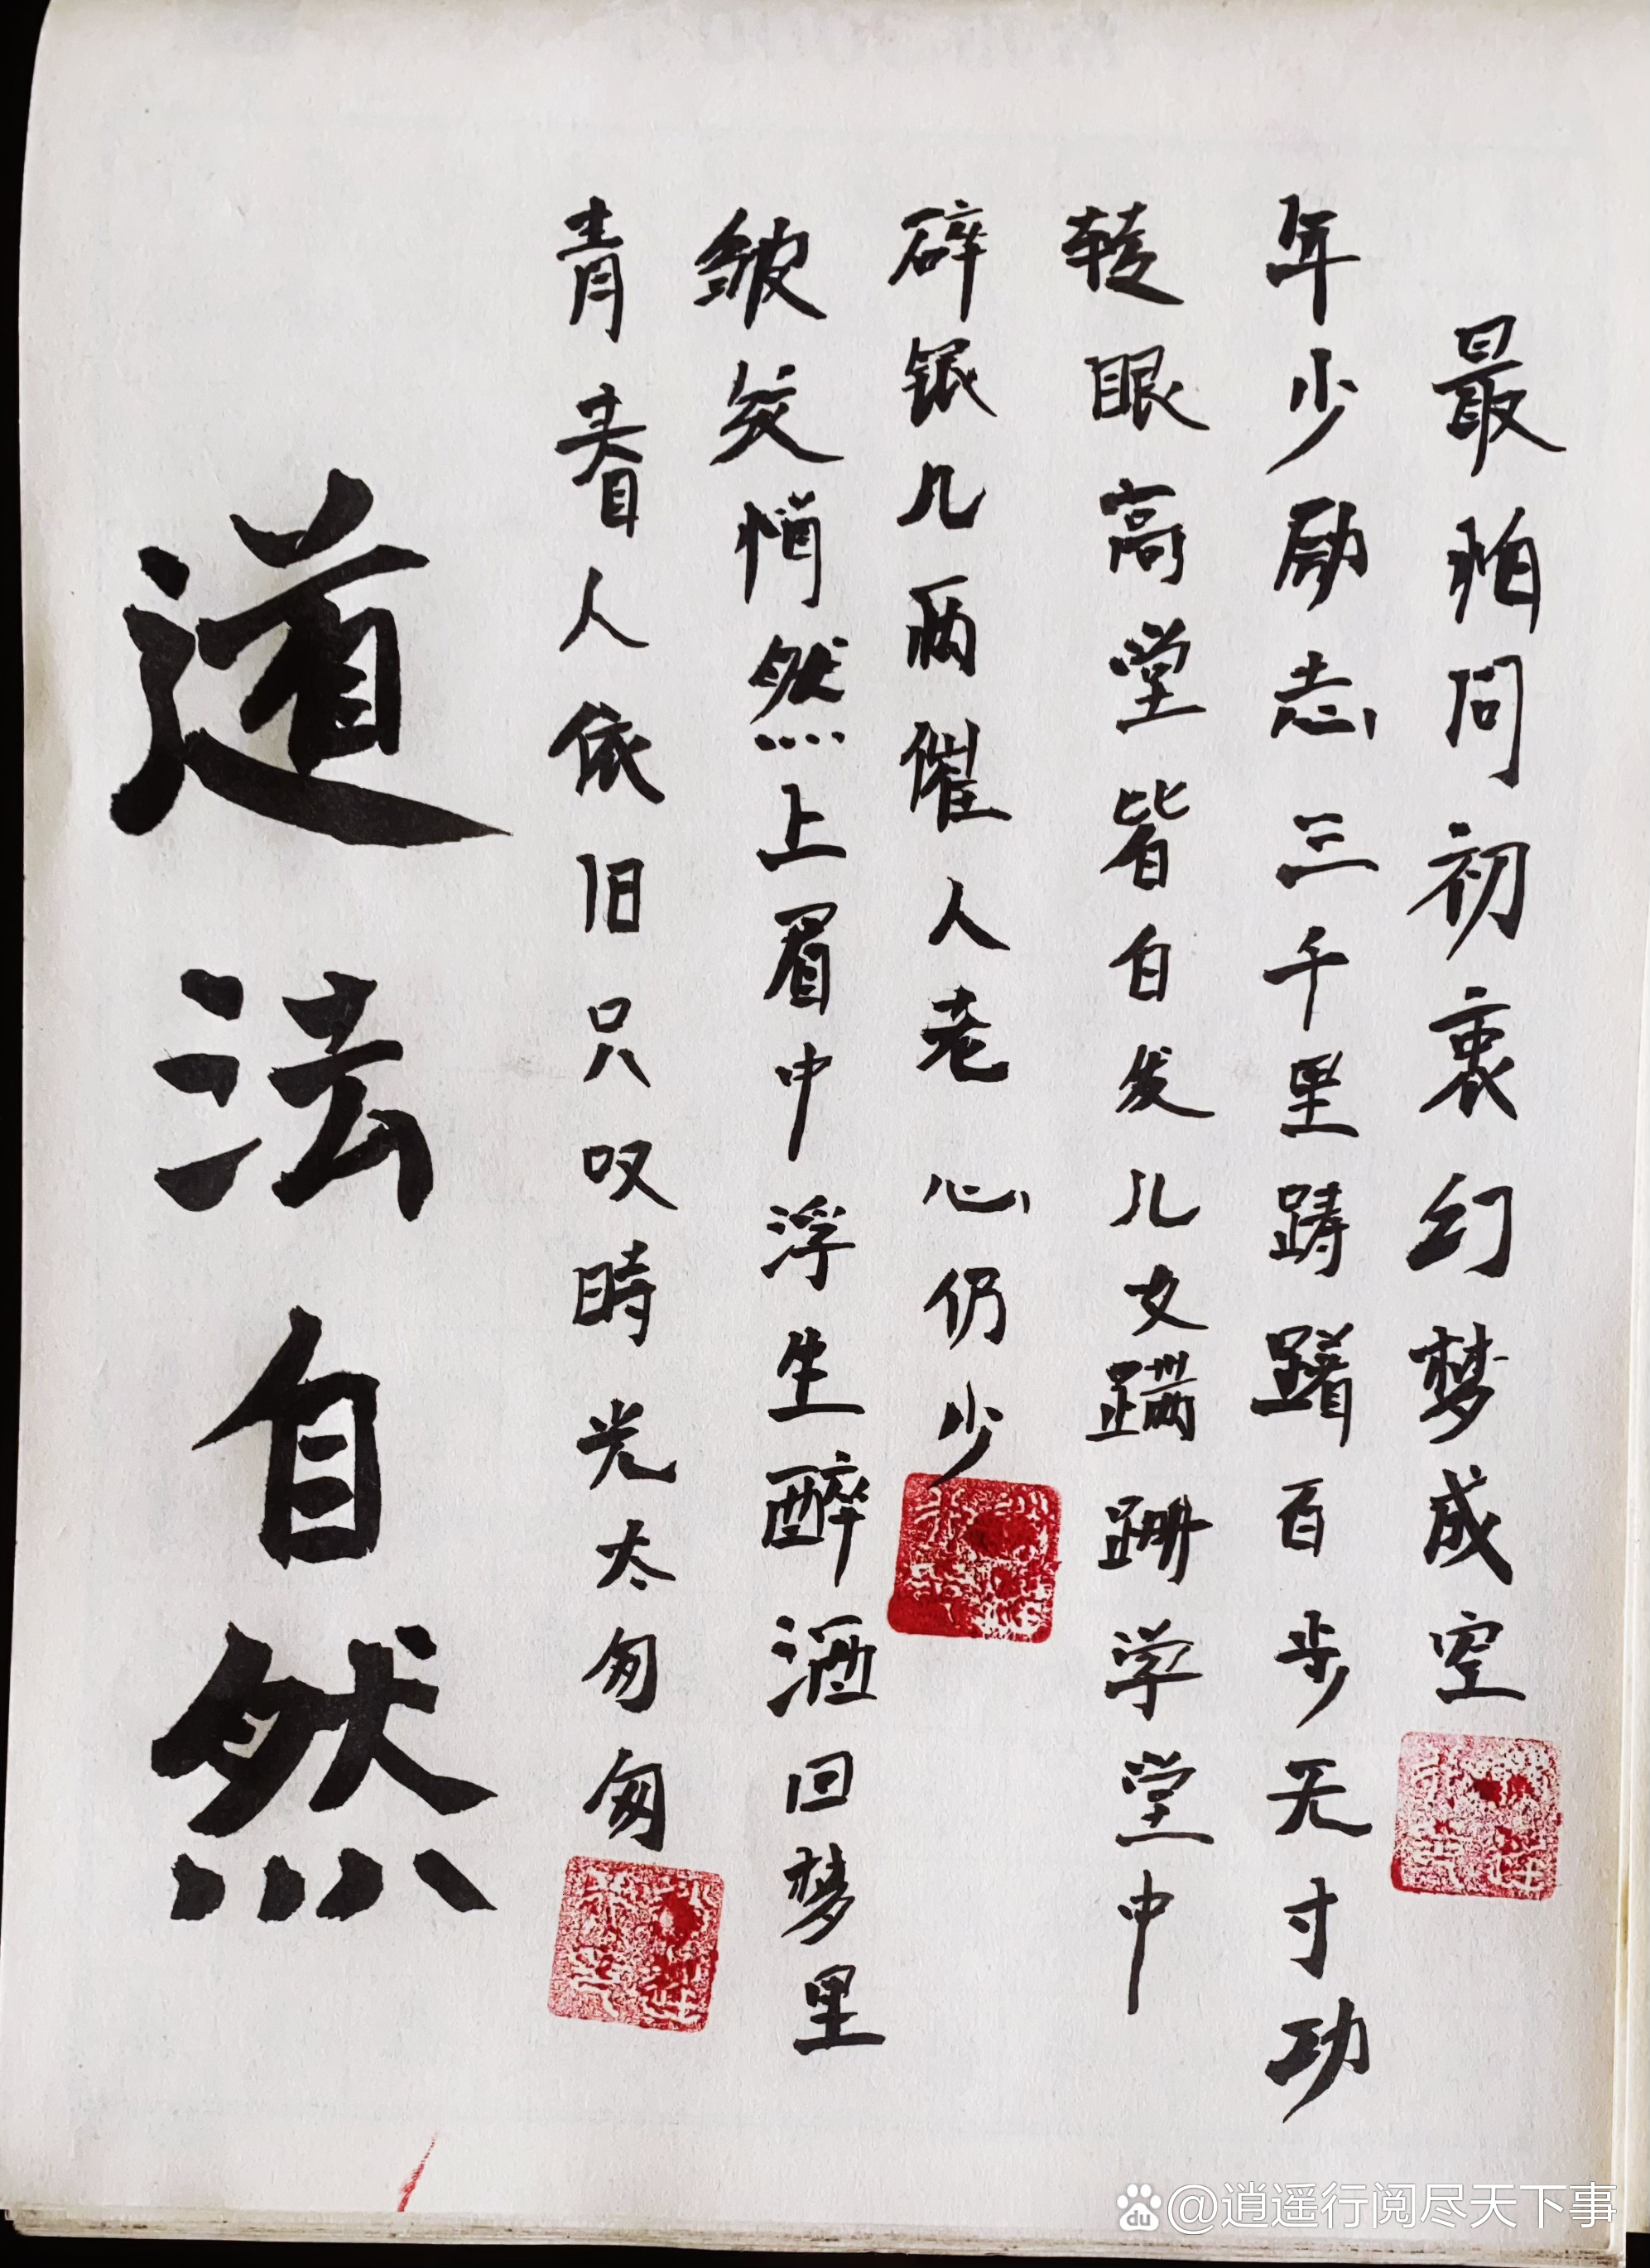 最怕问初衷幻梦成空
年少励志三千里踌躇百步无寸功
转眼高堂皆白发儿女蹒跚学堂中
碎银几两催人老心仍少
皱纹悄然上眉中浮生醉酒回梦里
青春人依旧只叹時光太匆匆
道法自然
@逍遥行阅尽天下事